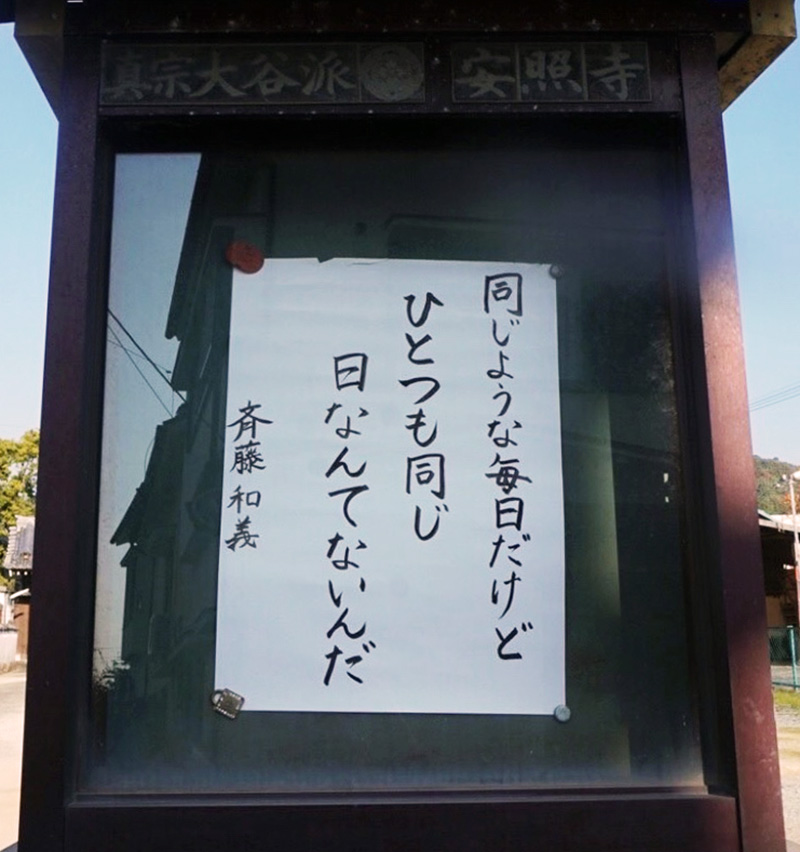 真宗大谷派 安照寺
同じような毎日だけど
ひとつも同じ
日なんてないんだ
斉藤和義